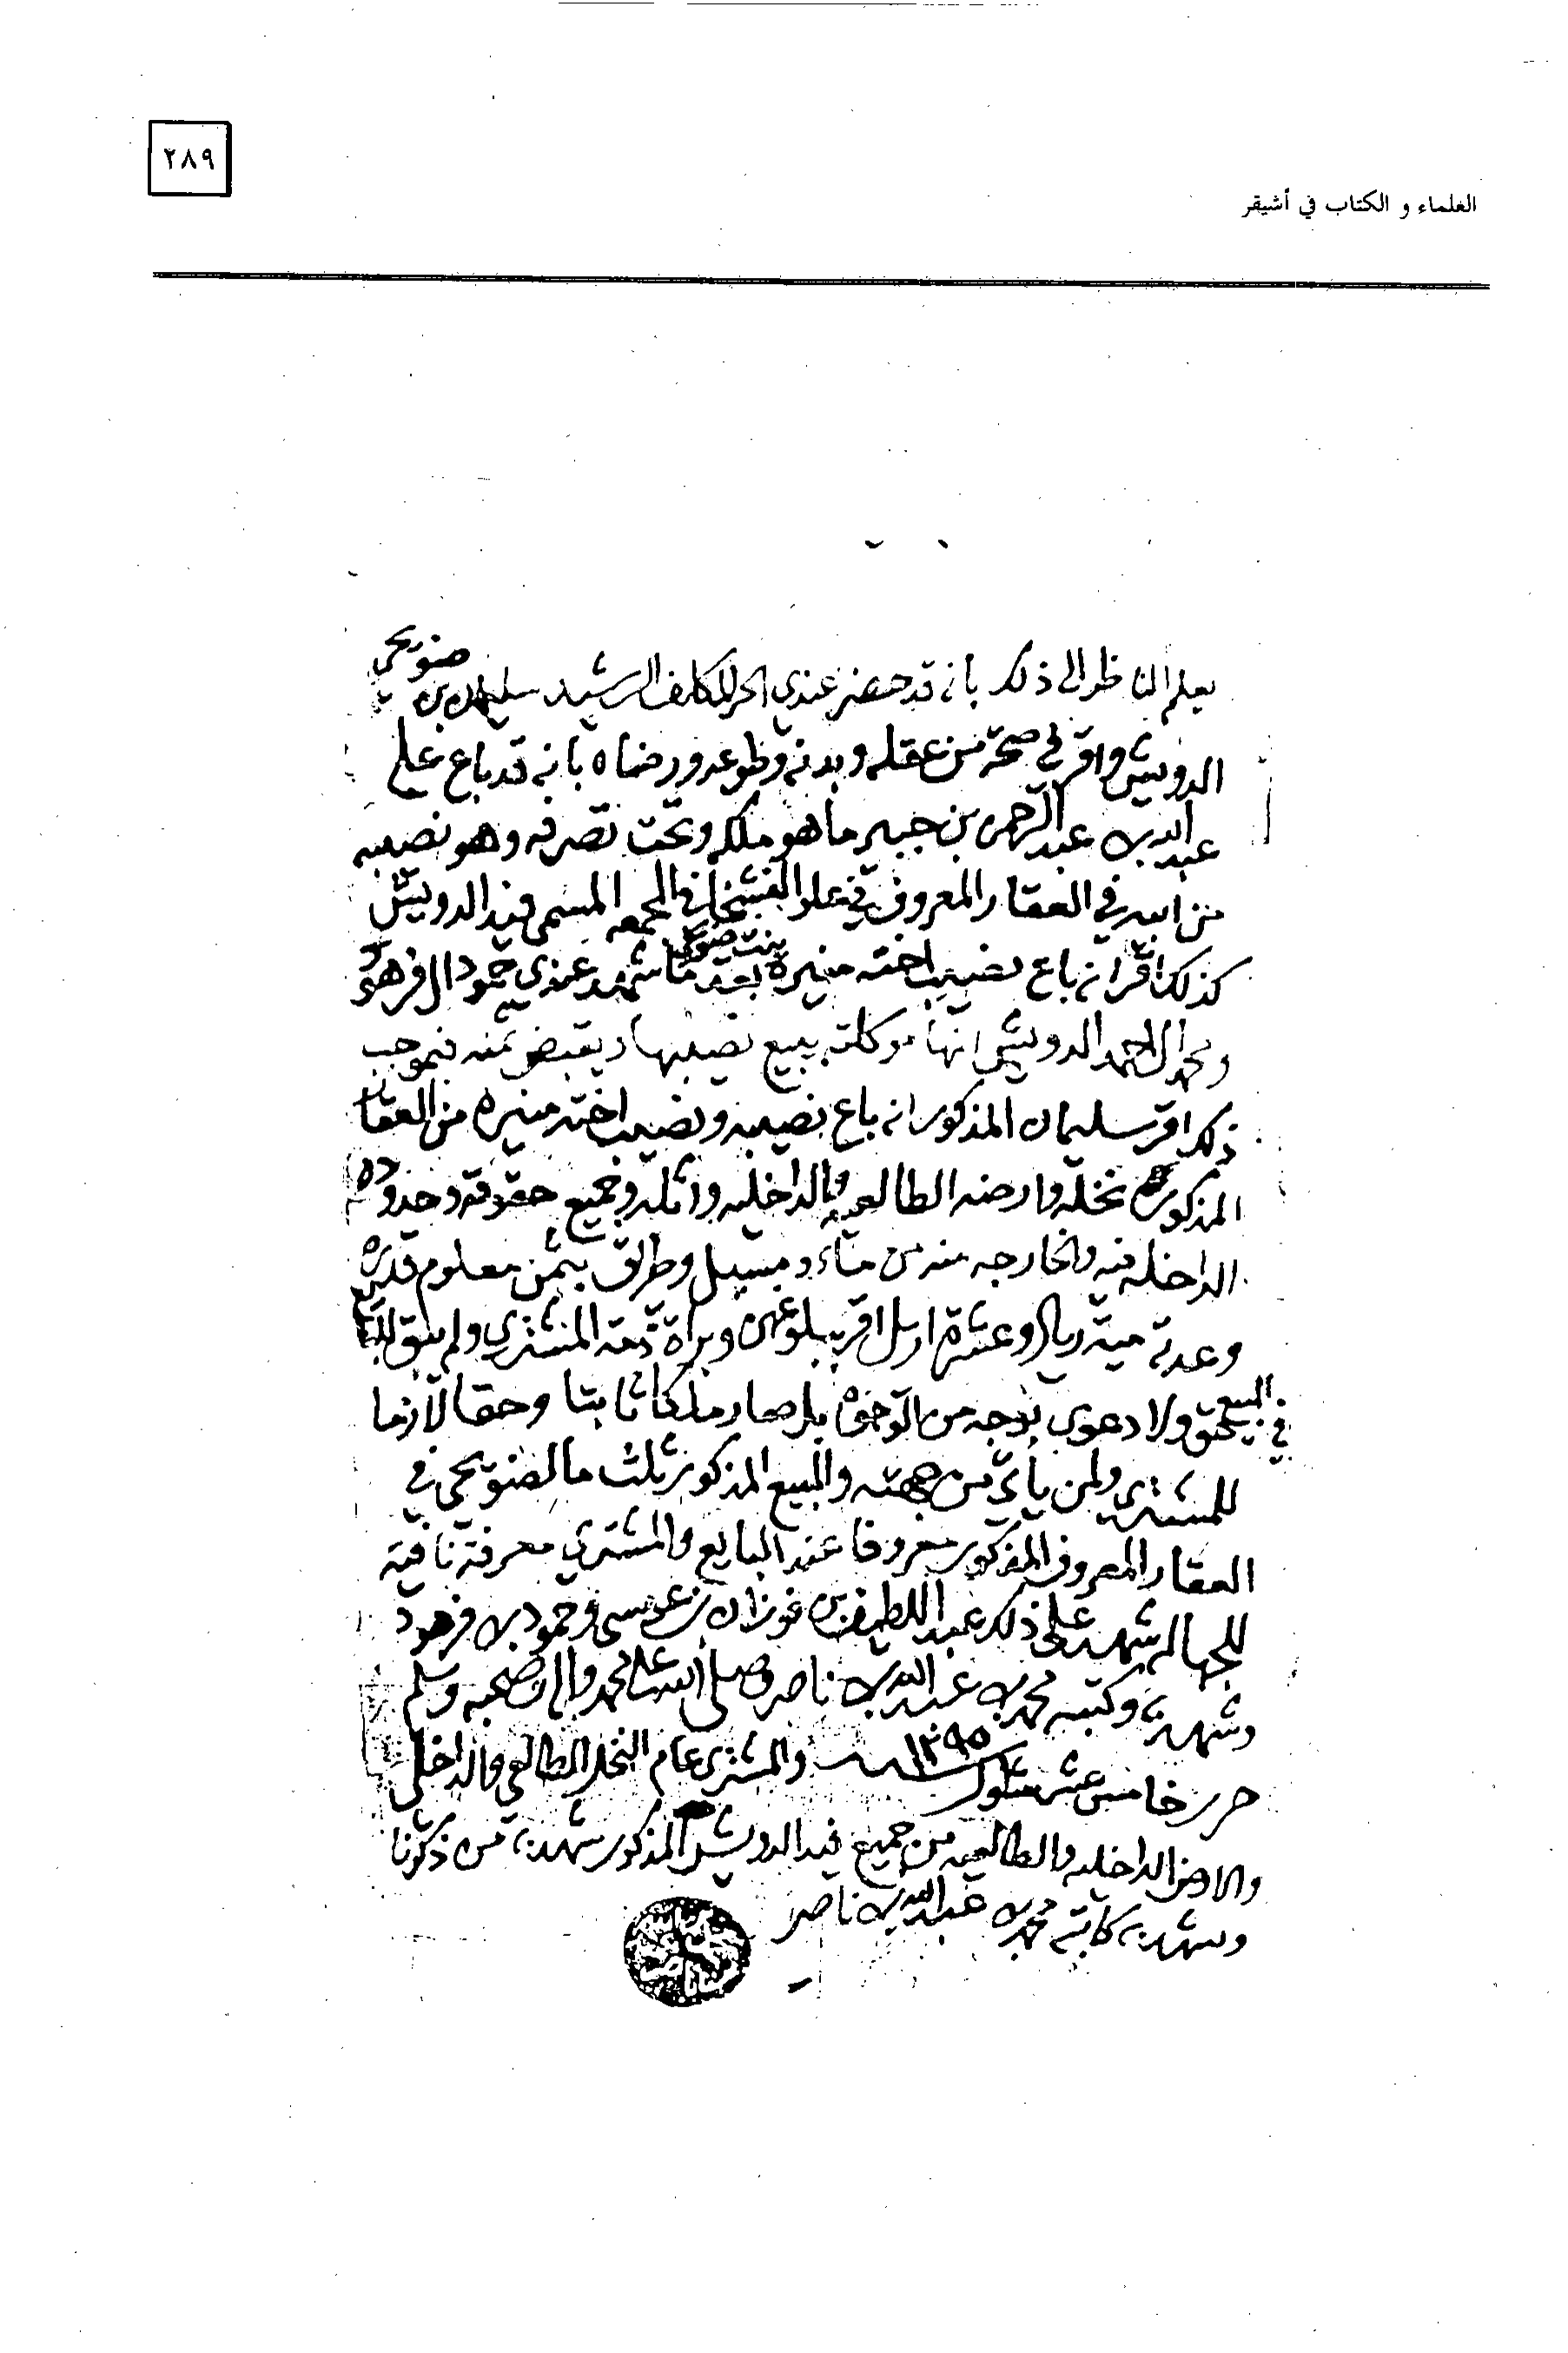 ٢٨٩
العلماء و الكتاب في أشيقر
يعلم الناظر الى ذلك بانه قد حضر عندي الحر المكلف الرشيد سليمان بن صنويحي
الدويش واقر في صحة من عقله وبدنه وطوعه ورضاه بانه قد باع على
عبدالله بن عبدالرحمن بن جبير ما هو ملكه وتحت تصرفه وهو نصيبه
من ابيه في العقار المعروف في علو الفشخا في الجمعه المسمى فيد الدويش
كذلك اقر انه باع نصيب اخته منيره بنت صنويحي بعد ما شهد عندي حمود ال فرهود
ومحمد ال احمد الدويش انها موكلته يبيع نصيبها ويقبض ثمنه فبموجب
ذلك اقر سليمان المذكور انه باع نصيبه ونصيب اخته منيره من العقار
المذكور نخله وارضه الطالعيه والداخليه واثله وجميع حقوقه وحدوده
الداخله فيه والخارجه منه من ماء ومسيل وطريق بثمن معلوم قدره
وعدته مية ريال وعشرة اريل اقر ببلوغهن وبراة ذمة المشتري ولم يبق للبايع
في المبيع حق ولا دعوى بوجه من الوجوه بل صار ملكا ثابتا وحقا لازما
للمشتري ولمن يأتي من جهته والمبيع المذكور ثلث ما لصنويحي في
العقار المعروف المذكور معروفا عند البايع والمشتري معرفة نافية
للجهاله شهد على ذلك عبد اللطيف بن فوزان بن عيسى وحمود بن فرهود
وشهد به وكتبه محمد بن عبدالله بن ناصر وصلى الله على محمد واله وصحبه وسلم
حرر خامس عشر شوال سنة ١٣٩٥ والمشترى عام النخل الطالعي والداخلي
والارض الداخليه والطالعيه من جميع فيد الدويش المذكور شهد به من ذكرنا
وشهد به كاتبه محمد بن عبدالله بن ناصر